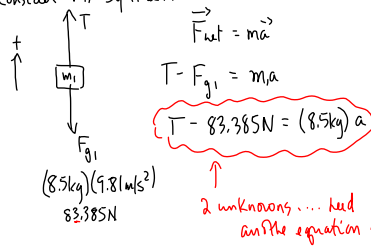 T
+
m₁
F_g₁
(8.5kg)(9.81m/s²)
83.385N
F⃗net = ma⃗
T - F_g₁ = m₁a
T - 83.385N = (8.5kg) a
2 unknowns .... need
another equation.